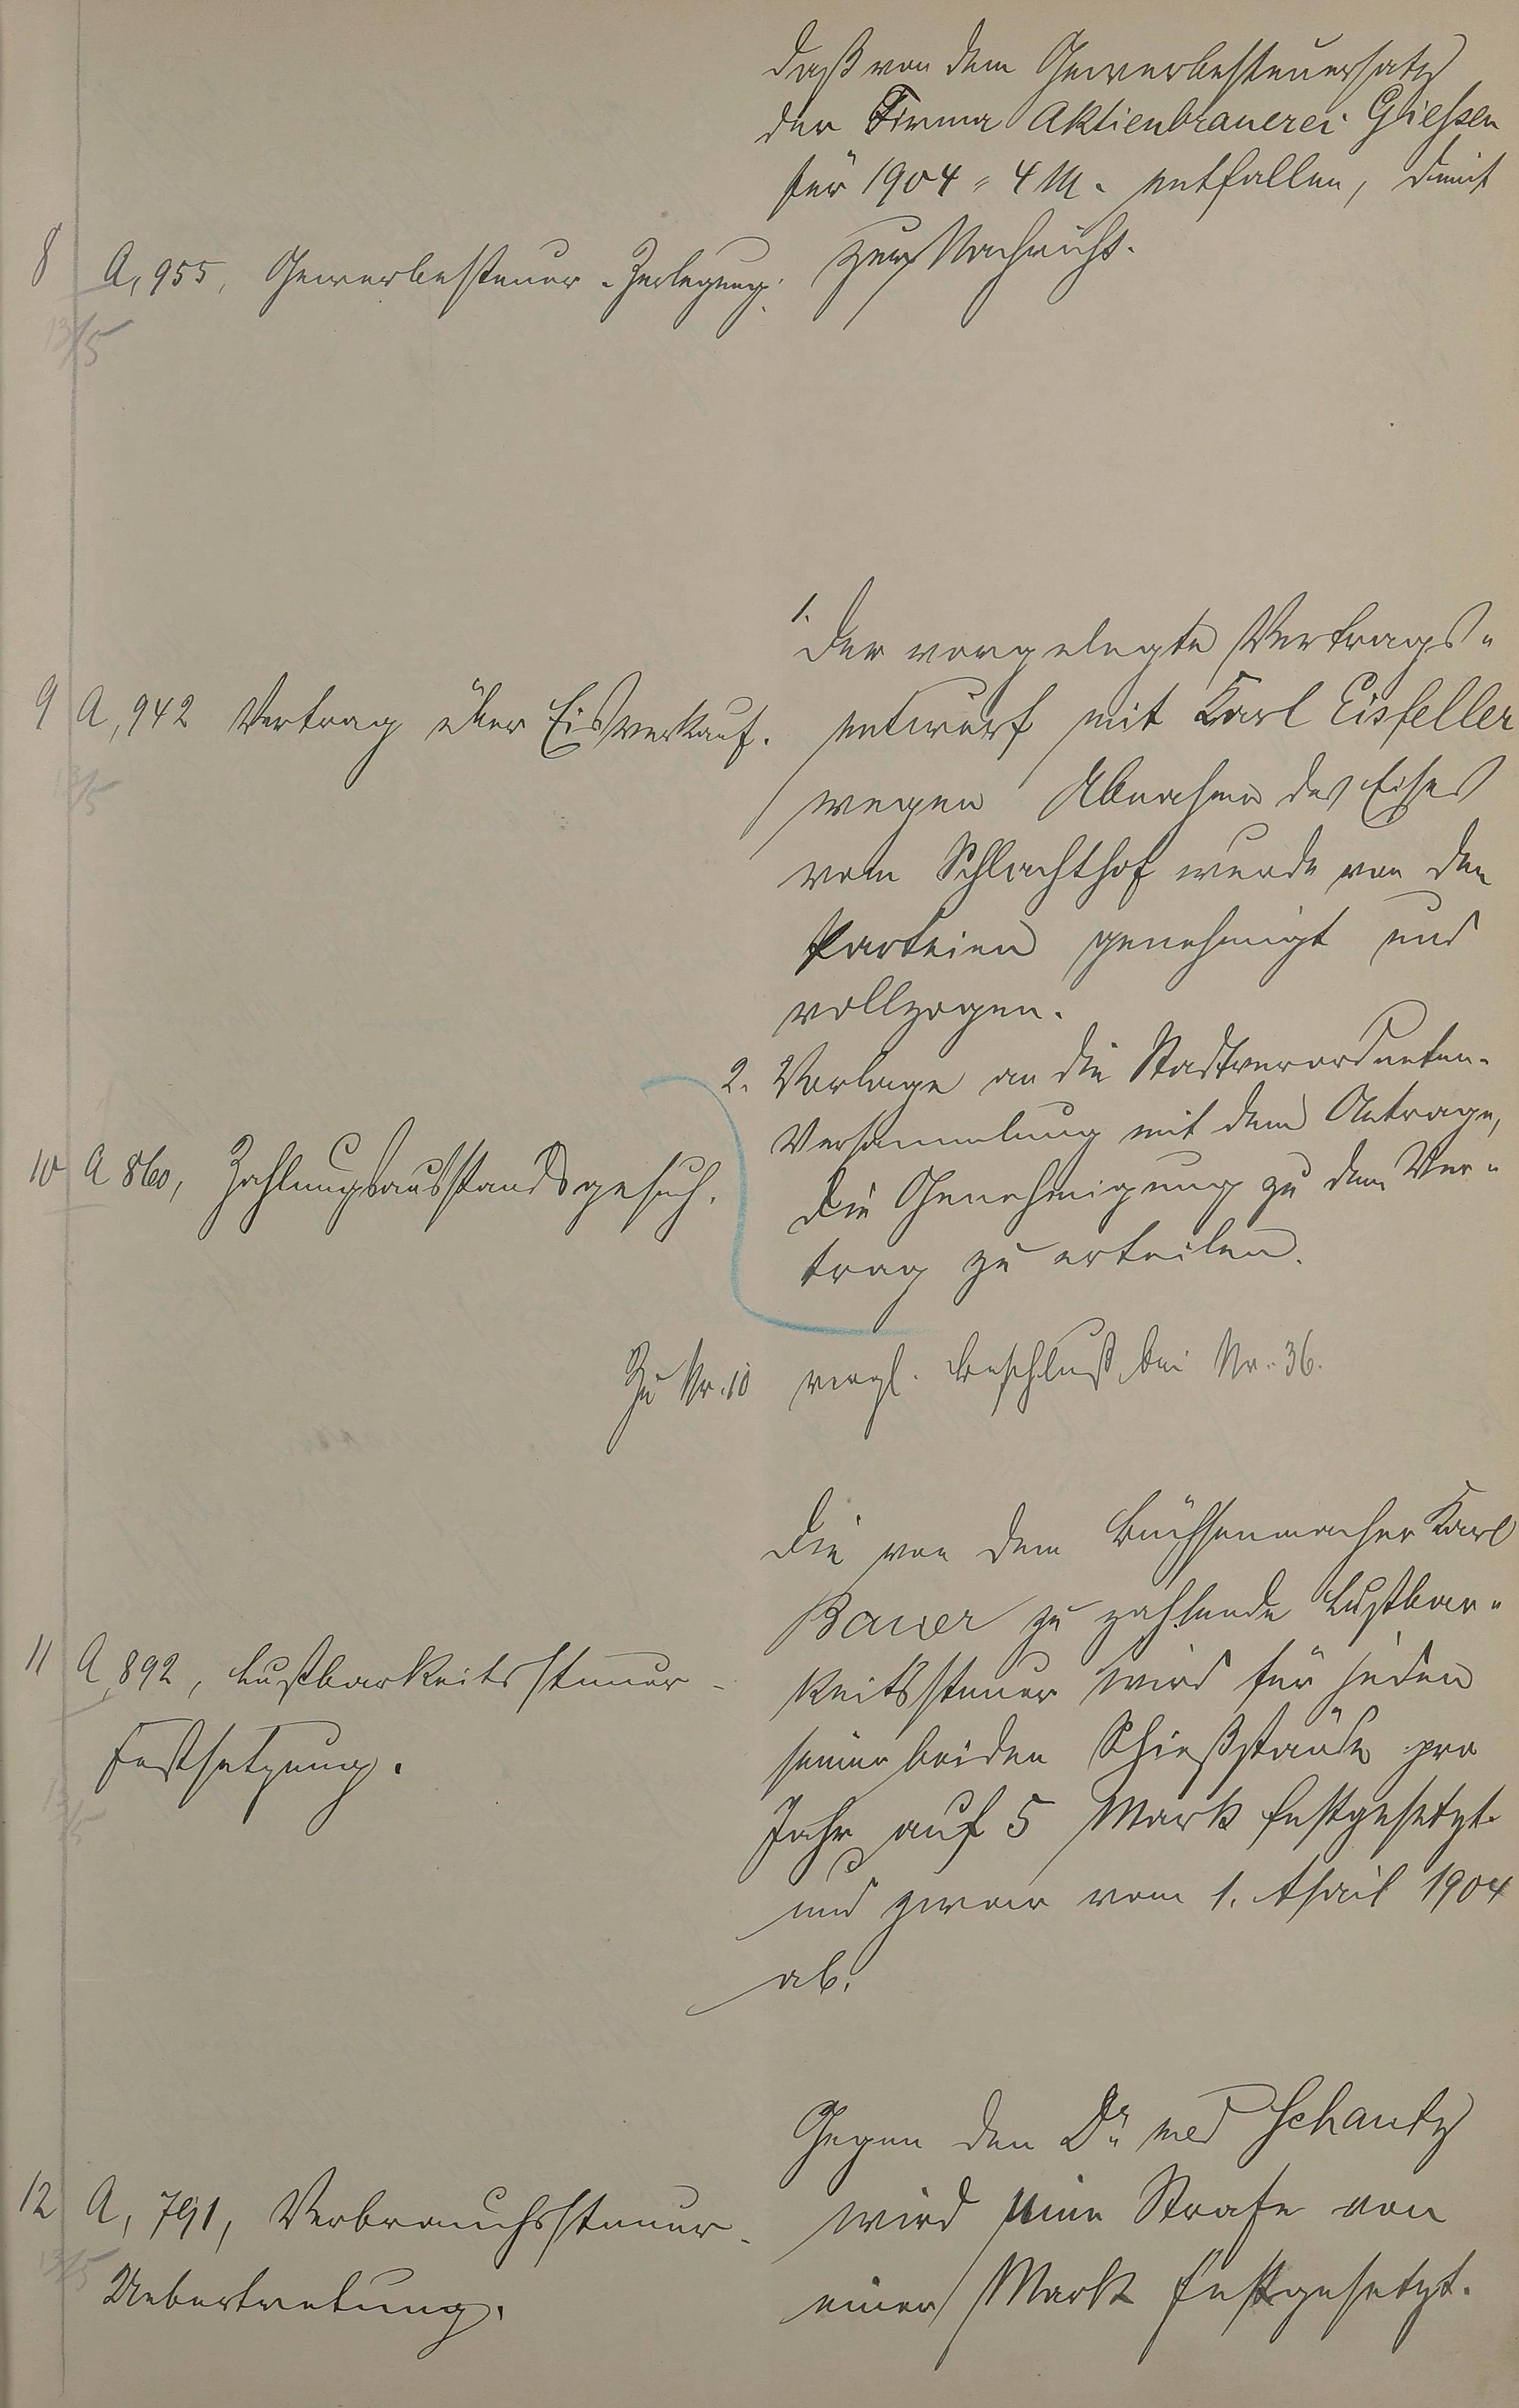 daß von dem Gewerbesteuersatz
der Firma Aktienbrauerei Gießen
für 1904 = 4 M. entfallen, dient
zur Nachricht.
8 A, 955, Gewerbesteuer-Zerlegung.
13/5
1.
Der vorgelegte Vertrags-
entwurf mit Karl Eisfeller
wegen Abnahme des Eises
vom Schlachthof wurde von den
Parteien genehmigt und
vollzogen.
9 A, 942 Vertrag über Eisverkauf.
13/5
2. Vorlage an die Stadtverordneten-
Versammlung mit dem Antrage,
die Genehmigung zu dem Ver-
trag zu erteilen.
10 A 860, Zahlungsausstandsgesuch.
Zu Nr. 10 vergl. Beschluß bei Nr. 36.
Die von dem Büchsenmacher Karl
Bauer zu zahlende Lustbar-
keitssteuer wird für jeden
seiner beiden Schießstände pro
Jahr auf 5 Mark festgesetzt
und zwar vom 1. April 1904
ab.
11 A, 892, Lustbarkeitssteuer-
Festsetzung.
13/5
Gegen den Dr. med Schantz
wird eine Strafe von
einer Mark festgesetzt.
12 A, 791, Verbrauchssteuer-
Uebertretung.
13/5